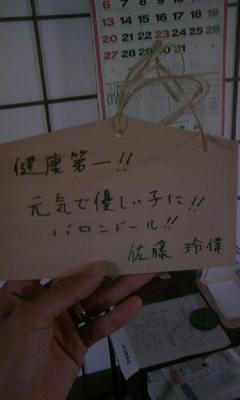 6 7 8 9 10 11 12
13 14 15 16 17 18 19
20 21 22 23 24 25 26
27 28 29 30 31
健康第一!!
元気で優しい子に!!
バロンドール!!
佐藤 玲偉